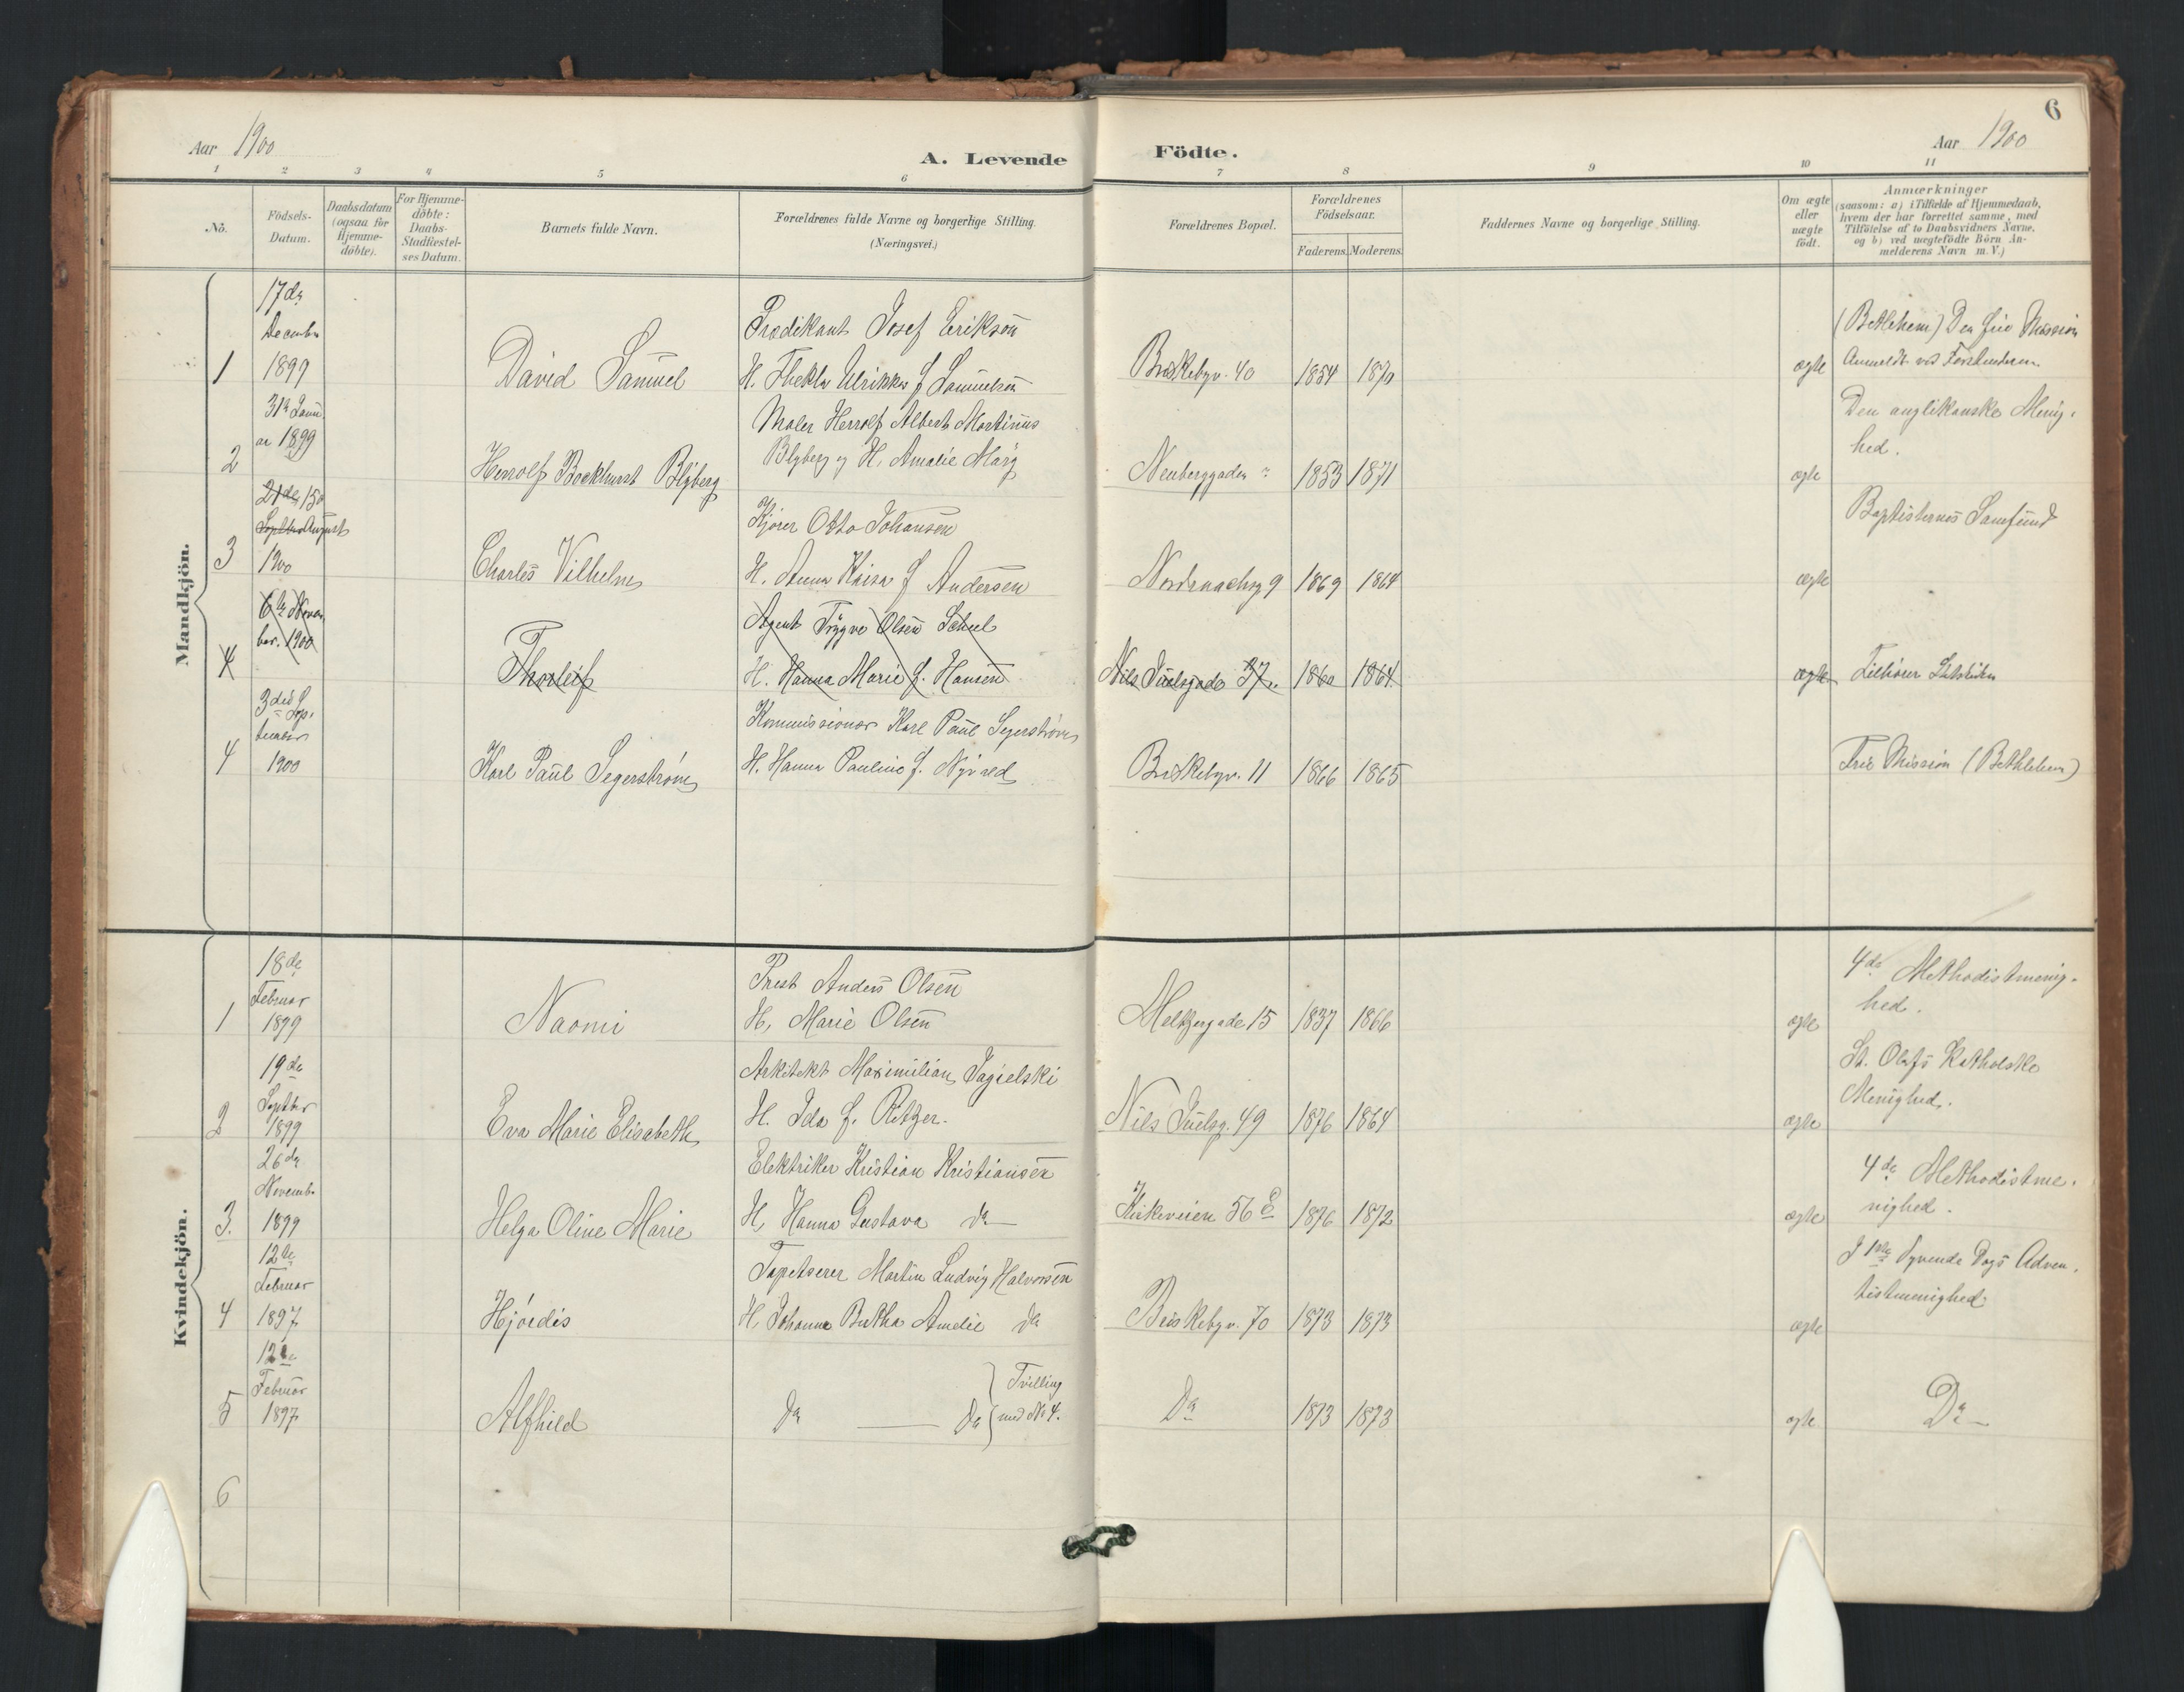 Aar 1900
A. Levende Födte.
6
Aar 1900
1 2 3 4 5 6 7 8 9 10 11
No.
Födsels-Datum.
Daabsdatum (ogsaa for Hjemme-döbte).
For Hjemme-döbte: Daabs-Stadfæstel-ses Datum.
Barnets fulde Navn.
Forældrenes fulde Navne og borgerlige Stilling.
(Næringsvei.)
Forældrenes Bopæl.
Forældrenes Födselsaar.
Faderens. Moderens.
Faddernes Navne og borgerlige Stilling.
Om ægte eller uægte födt.
Anmærkninger
(saasom: a) i Tilfælde af Hjemmedaab,
hvem der har forrettet samme, med
Tilföielse af to Daabsvidners Navne,
og b) ved uægtefödte Börn An-
melderens Navn m. V.)
Mandkjön.
17de
December
1 1899
David Samuel
Prædikant Josef Erikson
H. Thekla Ulrikka f Samuelson
Briskebyv. 40 1854 1870 ægte
(Bethlehem) Den frie Mission
Anmeldt ved Forstanderen.
31te Janu
ar 1899
2
Herrolf Bockhurst Blyberg
Maler Herrolf Albert Martinus
Blyberg og H. Amalie Marg
Neuberggaden 1853 1871 ægte
Den anglikanske Menig-
hed.
21de 15de
Septbr August
3 1900
Charles Vilhelm
Kjører Otto Johansen
H. Anna Kaisa f Andersen
9 1869 1864 ægte
Baptisternes Samfund
6te Novem
ber. 1900
4
Thorleif
Agent Trygve Olsen Scheel
H. Hanna Marie f. Hansen
Nils Juelsgade 37. 1860 1864. ægte
Tilhører Statskirken
3die Sep.
tember
4 1900
Karl Paul Segerström
Kommissionær Karl Paul Segerström
H. Hanna Pauline f.
Briskebyv. 11 1866 1865
Frie Mission (Bethlehem)
Kvindekjön.
18de
Februar
1 1899
Naomi
Prest Anders Olsen
H. Marie Olsen
Meltzersgade 15 1837 1866 ægte
4de Methodistmenig-
hed.
19de
Septbr
2 1899
Eva Marie Elisabeth
Arkitekt Maximilian Jagielski
H. Ida f. Ritzer.
Nils Juelsg. 49 1876 1864 ægte
St. Olafs Katholske
Menighed.
26de
Novemb.
3. 1899
Helga Oline Marie
Elektriker Kristian Kristiansen
H. Hanna Gustava do
Kirkeveien 56 1876 1872 ægte
4de Methodistme-
nighed.
12te
Februar
4 1897
Hjördis
Tapetserer Martin Ludvig Halvorsen
H. Johanne Bertha Amelie do
Briskebyv. 70 1873 1873 ægte
1ste Syvende Dags Adven-
tistmenighed
12te
Februar
5 1897
Alfhild
Do — Do
Tvilling
med No 4.
Do 1873 1873 ægte
Do
6